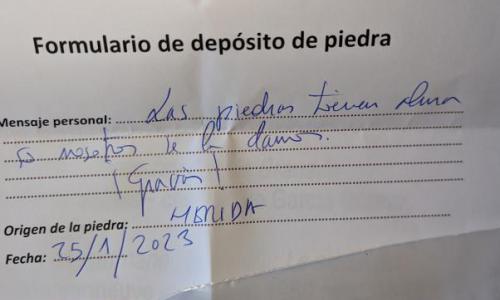 Formulario de depósito de piedra
Mensaje personal: Las piedras tienen alma
nosotros se la damos.
¡Gracias!
Origen de la piedra: MERIDA
Fecha: 25/1/2023